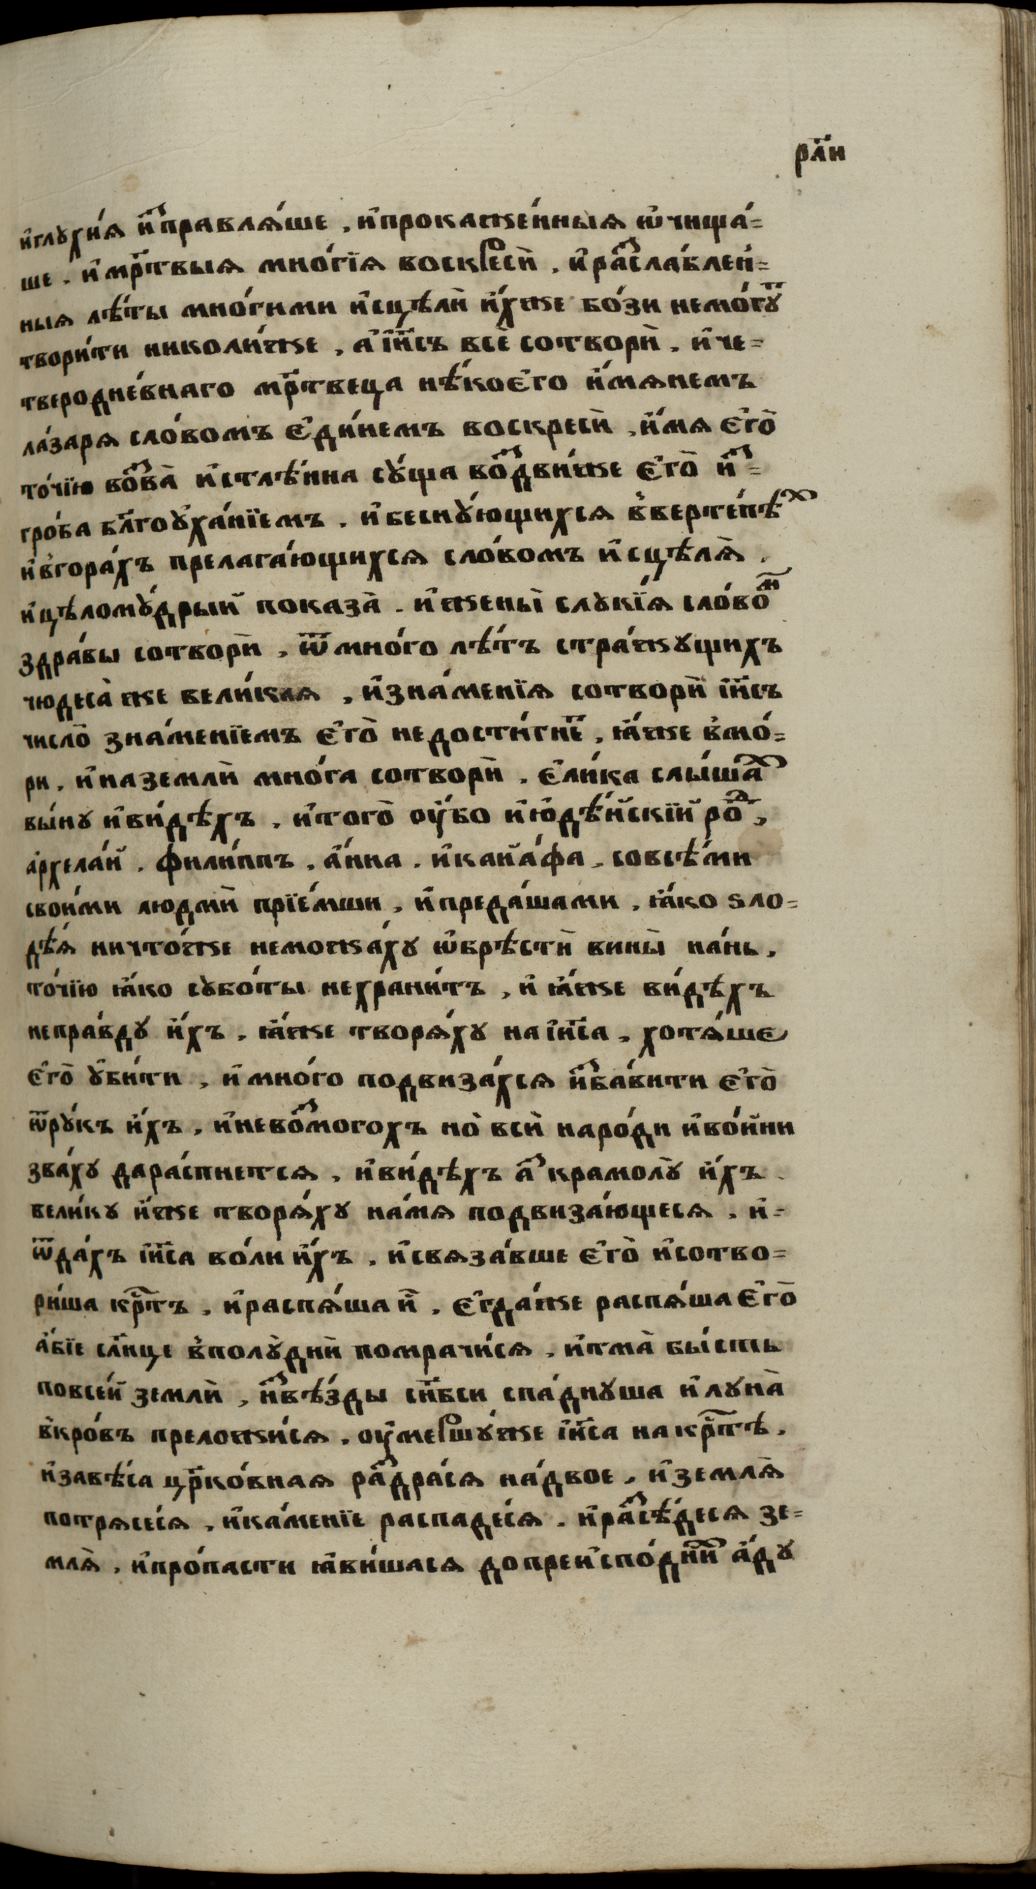 рл҃и
и҆глꙋхі́ѧ и҆спⷬ҇равлѧ́ше , и҆прокаже́нныѧ ѡ҆чища́=
ше . и҆мр҃твыѧ мно́гїѧ воскреси̾ . и҆раз̾слабле́н=
ныѧ лѣ́ты мно́гими и҆сцѣли̾ и҆́хже бо́зи немо́гꙋт
твори́ти николи́же , а҆ і҆и҃съ всѐ сотворѝ . и҆че=
тверодне́внаго мр҃твеца нѣ́коего и҆́мѧнемъ
ла́зарѧ сло́вомъ є҆ди́немъ воскресѝ , и҆́мѧ є҆го̀
то́чїю возва̀ и҆стлѣ́нна сꙋ́ща воздви́же є҆го̀ из=
гро́ба бл҃гоꙋха́нїемъ . и҆беснꙋ́ющихсѧ в̾верте́пѣх
и҆в̾гора́хъ прелага́ющихсѧ сло́вомъ и҆сцѣлѧ̀ .
и҆цѣломꙋ́дрый показа̀ . и҆жены̀ слꙋкі́ѧ сло́вом
здра́вы сотворѝ , ѿмно́го лѣ́тъ стра́жꙋщихъ
чюдеса̀ же вели́каѧ , и҆зна́менїѧ сотворѝ і҆и҃съ
число̀ зна́менїемъ є҆го̀ недости́гнет , ꙗ҆́же в̾мо́=
ри . и҆наземлѝ мно́га сотворѝ . є҆ли́ка слы́шах
вы́нꙋ и҆ви́дѣхъ . и҆того̀ ᲂу҆́бо и҆ю҆дѣ́йскїй род ,
а҆рхела́й . фили́ппъ . а҆́нна . и҆каїа́фа . совсѣ́ми
свои́ми людмѝ прїе́мши , и҆преда́шами , ꙗ҆́ко ѕло=
дѣ́ѧ ничто́же неможа́хꙋ ѡ҆брѣстѝ вины̀ на́нь .
то́чїю ꙗ҆́ко сꙋбо́ты нехрани́тъ , и҆ ꙗ҆́же ви́дѣхъ
непра́вдꙋ и҆́хъ . ꙗ҆́же творѧ́хꙋ на і҆и҃са , хотѧ́ше
є҆го̀ ᲂубити , и҆ мно́го подвиза́хсѧ из̾ба́вити є҆го̀
ѿрꙋ́къ и҆́хъ , и҆невозмогохъ но̀ всѝ наро́ди и҆во́йни
зва́хꙋ дара́спнетсѧ , и҆ви́дѣхъ аз крамолꙋ̀ и҆́хъ .
вели́кꙋ и҆́же творѧ́хꙋ на́мѧ подвиза́ющесѧ . и҆=
ѿда́хъ і҆и҃са во́ли и҆́хъ . и҆свѧза́вше є҆го̀ и҆сотво=
ри́ша кр҃тъ , и҆распѧ́ша и҆̀ , є҆гда́же распѧ́ша є҆го̀
а҆́бїе сл҃нце в̾полꙋ́днѝ помрачи́сѧ , и҆тма̀ бы́сть
повсе́й землѝ , и҆звѣ́зды сн҃бси спа́днꙋша и҆лꙋна̀
в̾кро́въ преложи́сѧ . ᲂу҆ме́ршꙋже і҆и҃са на кр҃тѣ .
и҆завѣ́са цр҃ко́внаѧ раздрасѧ на́двое , и҆землѧ̀
потрѧсе́сѧ , и҆ка́менїе распаде́сѧ . и҆разсѣ́десѧ зе=
млѧ̀ , и҆про́пасти ꙗ҆ви́шасѧ допреи҆спо́днии а҆́дꙋ